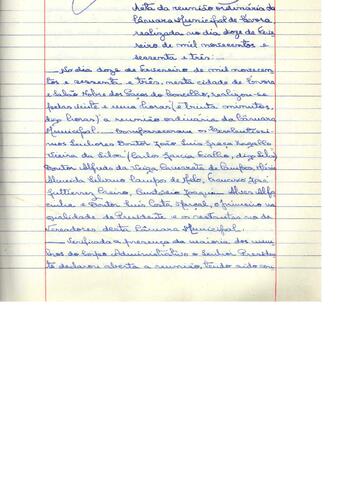 Acta da reunião ordinária da
Câmara Municipal de Évora
realizada no dia doze de Feve-
reiro de mil novecentos e
sessenta e três.
No dia doze de Fevereiro de mil novecen-
tos e sessenta e três, nesta cidade de Évora
e salão Nobre dos Paços do Concelho, realizou-se
pelas vinte e uma horas (e trinta minutos,
digo horas) a reunião ordinária da Câmara
Municipal. Compareceram os Excelentíssi-
mos Senhores Doutor João Luis
Vieira da Silva (Carlos Garcia Fialho, digo Silva)
Doutor Alfredo da Veiga de Campos,
Almeida Campos de Melo, Francisco José
Guttierrez Custódio Joaquim Alves
e Doutor Luis Costa o primeiro na
qualidade de Presidente e os restantes na de
Vereadores desta Câmara Municipal.
Verificada a presença da maioria dos mem-
bros do Corpo Administrativo o Senhor Presiden-
te declarou aberta a reunião, tendo sido